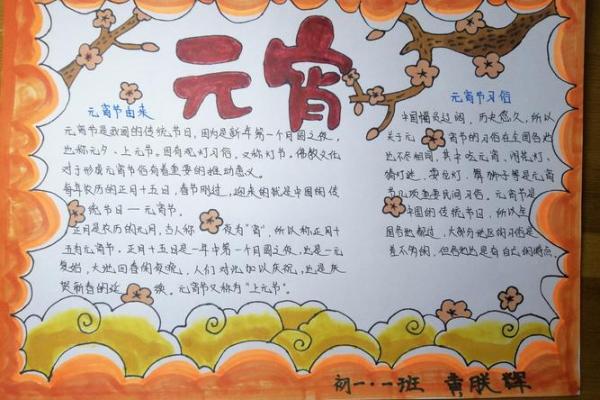 元宵
元宵节由来
元宵节是我国的传统节日,因为是新年第一个月圆之夜,
也称元夕、上元节。因有观灯习俗,又称灯节。佛教文化
对于形成元宵节俗有着重要的推动意义。
每年农历的正月十五日,春节刚过,迎来的就是中国的传
统节日——元宵节。
正月是农历的元月,古人称 夜为"宵",所以称正月十
五为元宵节。正月十五日是一年中第一个月圆之夜,也是一元
复始,大地回春的夜晚,人们对此加以庆祝,也是庆
贺新春的延 续。元宵节又称为"上元节"。
元宵节习俗
中国幅员辽阔,历史悠久,所以
关于元 宵节的习俗在全国各地
也不相同,其中吃元宵、闹花灯、
猜灯谜、耍龙灯、舞狮子等是元宵
节几项重要民间习俗。元宵节是
中国的传统节日,所以全
国各地都过,大部分地区的习俗是
差不多的,但各地也是有自己的特点
初一·一班 黄朕辉